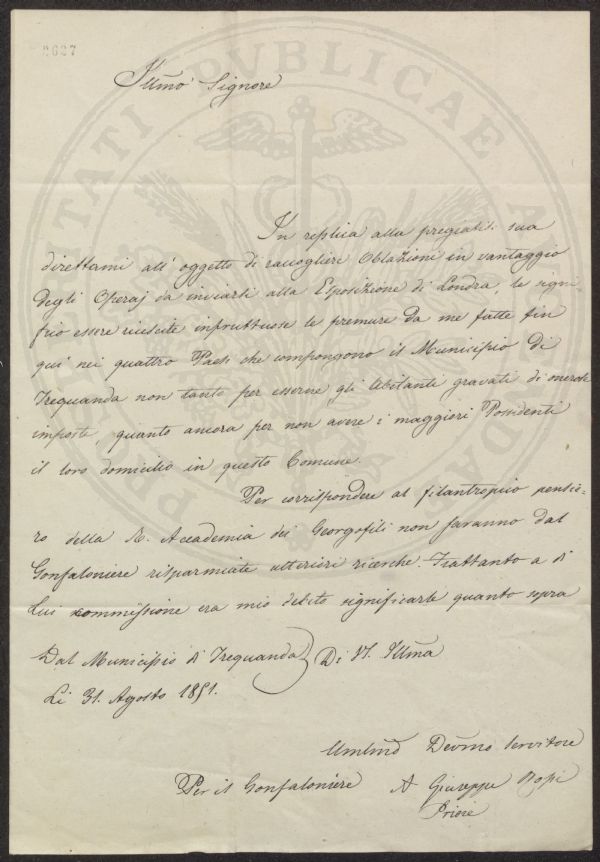 2627
PROSPERITATI PUBLICAE AUGENDAE
Illmo Signore
In replica alla pregiatis: sua
direttami all' oggetto di raccogliere Oblazioni in vantaggio
degli Operaj da inviarsi alla Esposizione di Londra, le signi
fico essere riuscite infruttuose le premure da me fatte fin
qui nei quattro Paesi che compongono il Municipio di
Trequanda non tanto per esserne gli Abitanti gravati di onerose
imposte, quanto ancora per non avere i maggiori Possidenti
il loro domicilio in questo Comune.
Per corrispondere al filantropico pensie-
ro della R. Accademia dei Georgofili non saranno dal
Gonfaloniere risparmiate ulteriori ricerche. Frattanto a di
Lui commissione era mio debito significarle quanto sopra
Dal Municipio di Trequanda Di V. Illma
Li 31. Agosto 1851.
Umilmo Devmo Servitore
Per il Gonfaloniere A Giuseppe
Priore